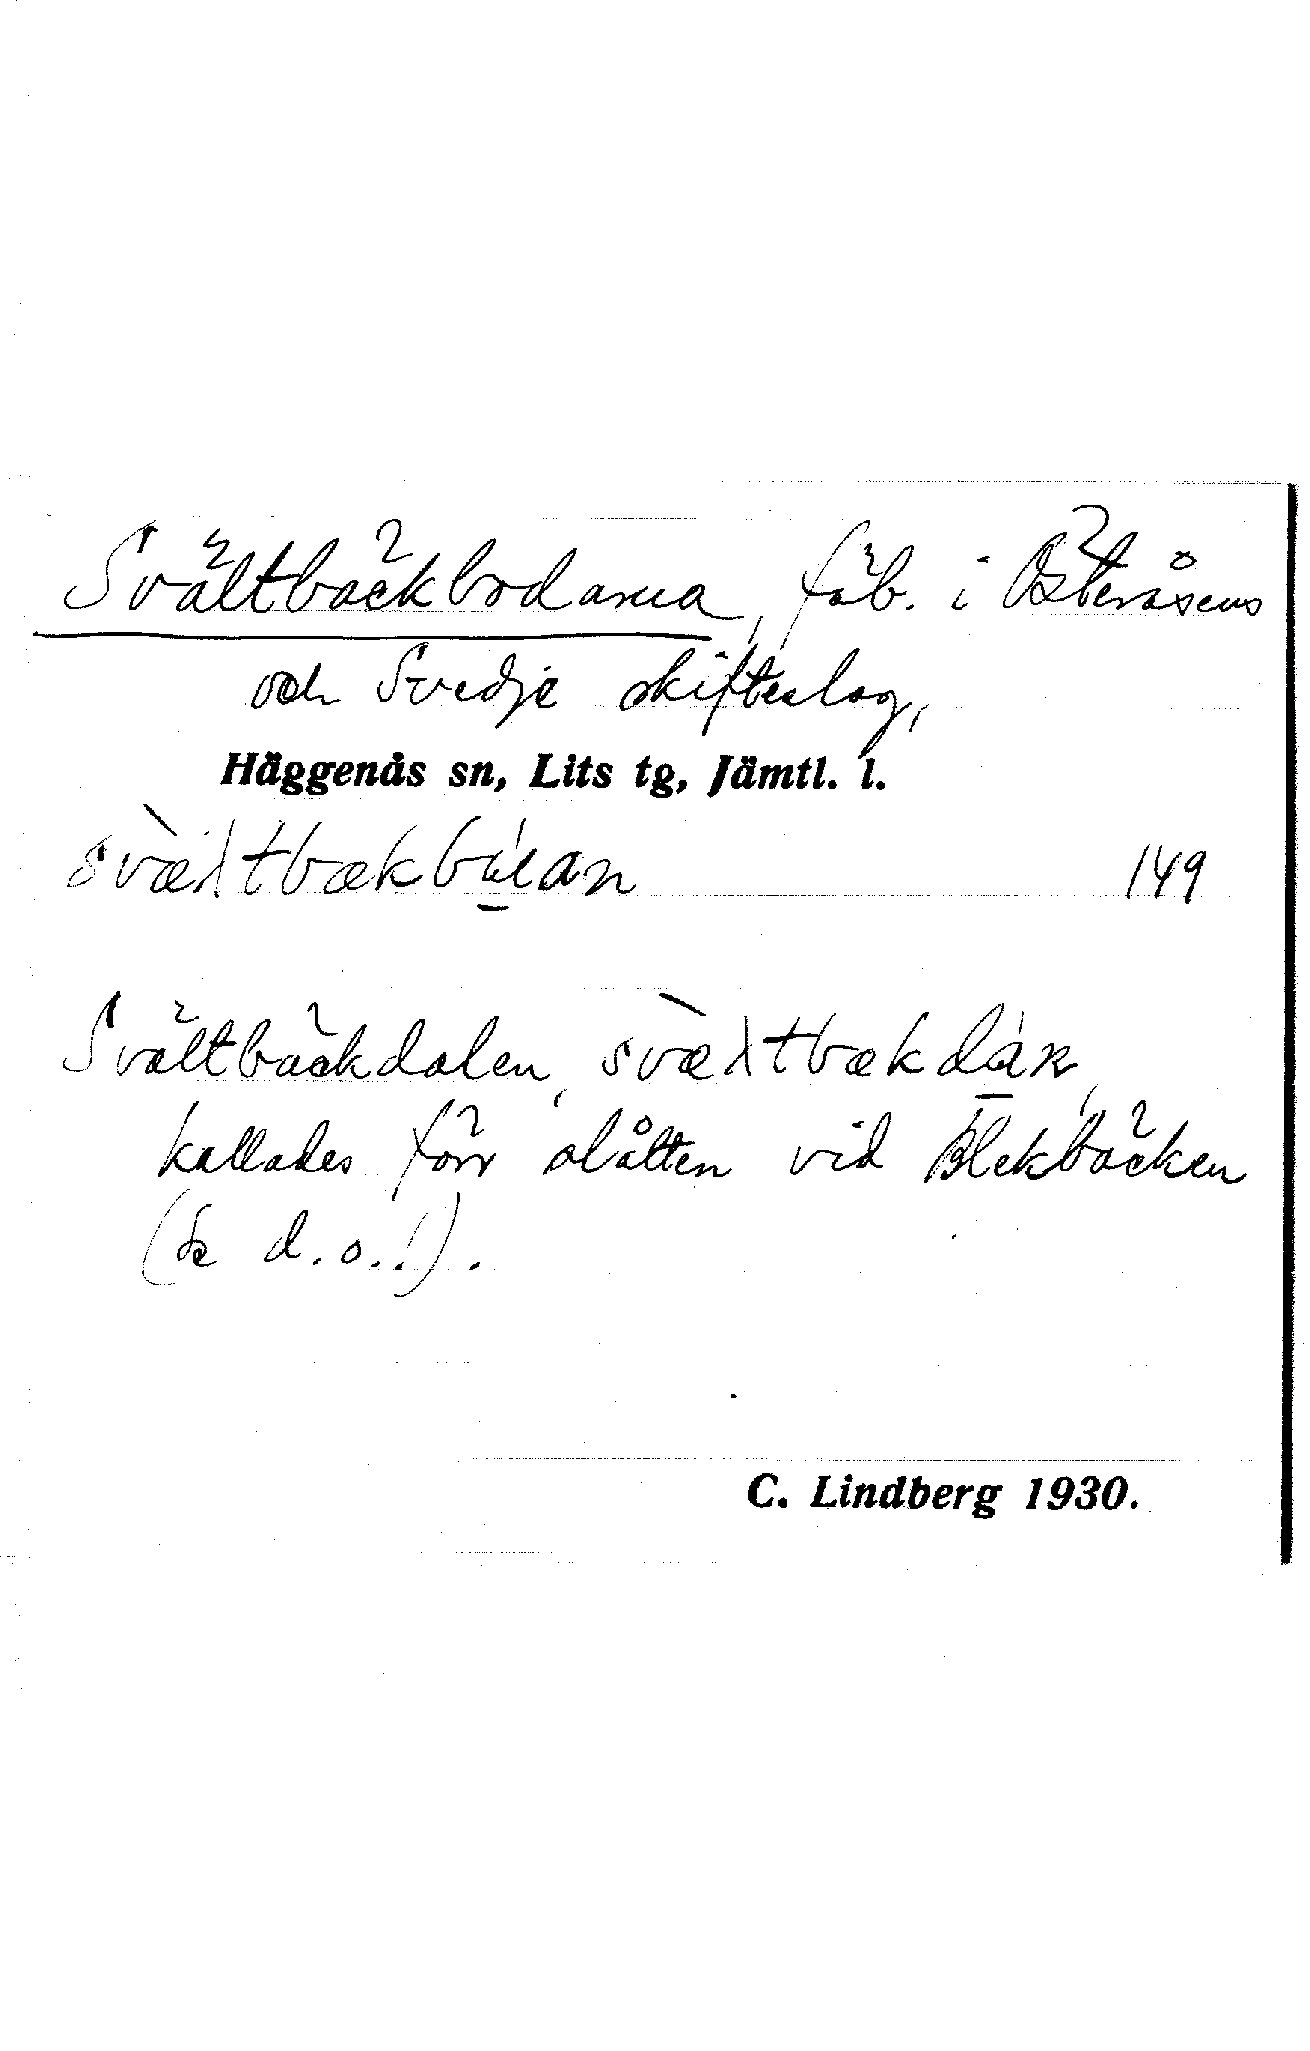 Svältbäckbodarna, fäb. i Österåsens
och Svedje skifteslag,
Häggenås sn, Lits tg, Jämtl. l.
149
Svältbäckdalen,
kallades förr slåtten vid Blekbäcken
(se d.o.!).
C. Lindberg 1930.